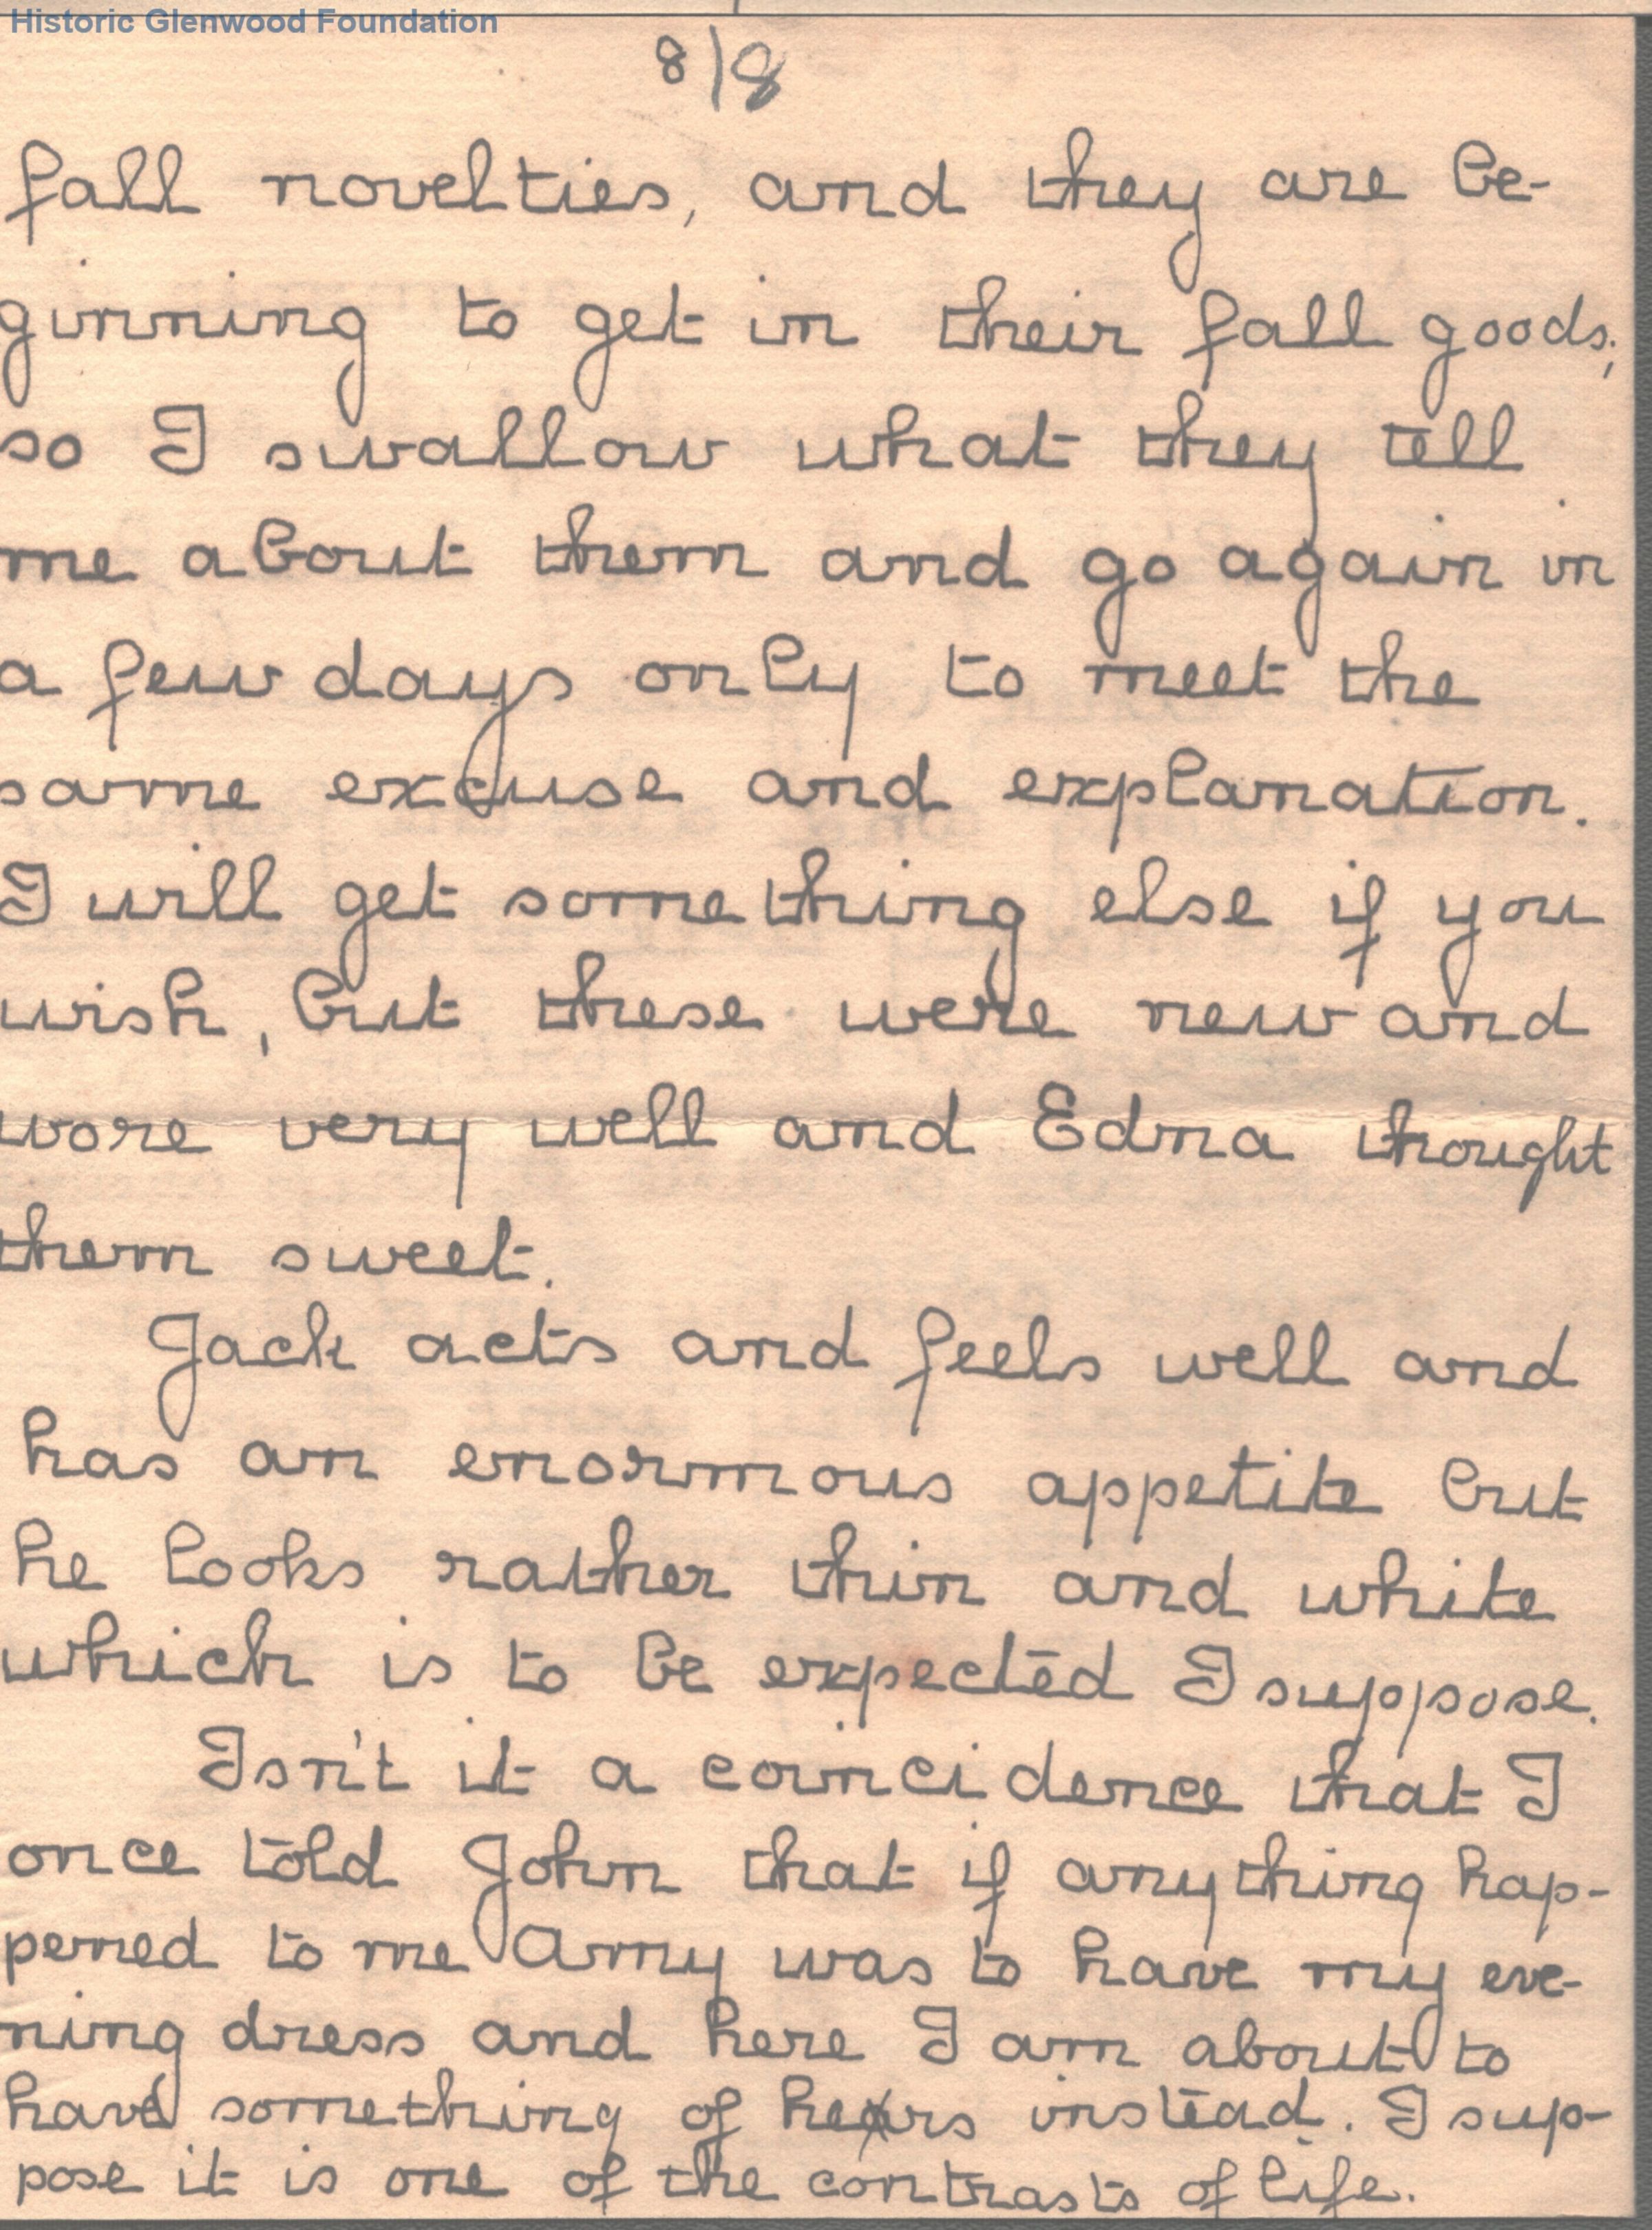 Historic Glenwood Foundation
8/8
fall novelties, and they are be-
ginning to get in their fall goods;
so I swallow what they tell
me about them and go again in
a few days only to meet the
same excuse and explanation.
I will get something else if you
wish, but these were new and
wore very well and Edna thought
them sweet.
Jack acts and feels well and
has an enormous appetite but
he looks rather thin and white
which is to be expected I suppose.
Isn't it a coincidence that I
once told John that if anything hap-
pened to me Amy was to have my eve-
ning dress and here I am about to
have something of hers instead. I sup-
pose it is one of the contrasts of life.